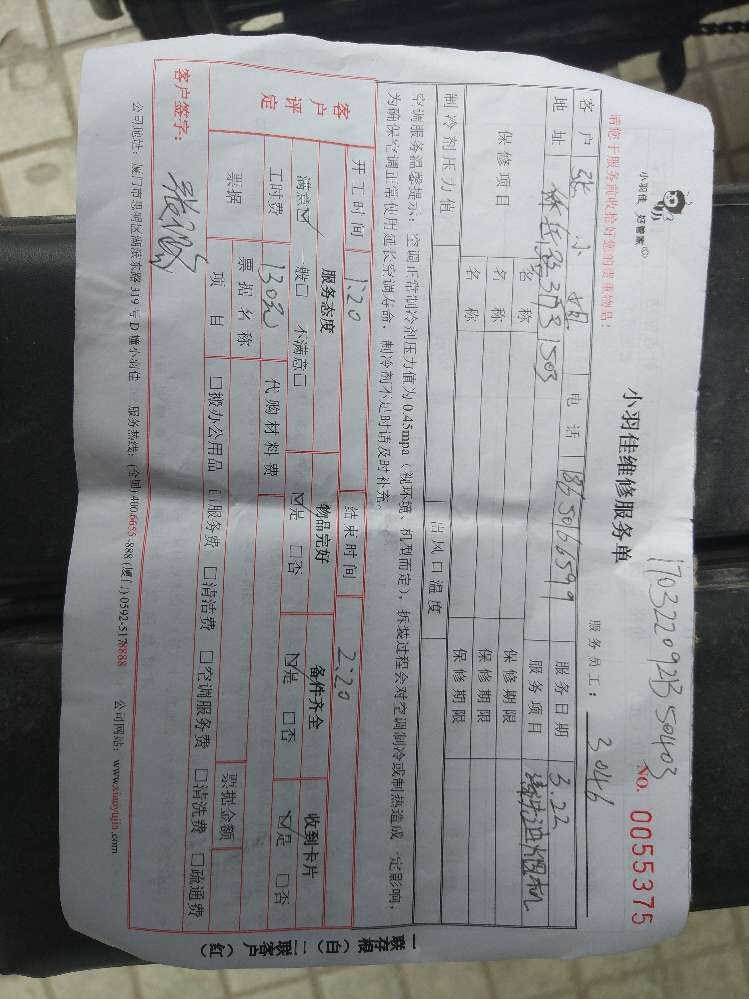 小羽佳 好管家
170322092350403
小羽佳维修服务单
No. 0055375
请您于服务前收拾好您的贵重物品!
服务员工: 3046
客户 张小姐 电话 18650166599 服务日期 3.22
地址 503 服务项目 清洗油烟机
保修项目 名称 保修期限
名称 保修期限
名称 保修期限
制冷剂压力值 出风口温度
空调服务温馨提示: 空调正常制冷剂压力值为0.45mpa(视环境、机型而定), 拆装过程会对空调制冷或制热造成一定影响,
为确保空调正常使用延长空调寿命, 制冷剂不足时请及时补充。
开工时间 1:20 结束时间 2:20
客户评定 服务态度 物品完好 备件齐全 收到卡片
满意☑ 一般□ 不满意□ ☑是 □否 ☑是 □否 ☑是 □否
工时费 130元 代购材料费
票据 票据名称 票据金额
项目 □被办公用品 □服务费 □清洁费 □空调服务费 □清洗费 □疏通费
客户签字:
公司地址: 厦门市思明区湖滨东路319号D幢小羽佳 服务热线: (全国)4006655-888 (厦门)0592-5178888 公司网站: www.xiaoyujia.com
一联存根(白)二联客户(红)